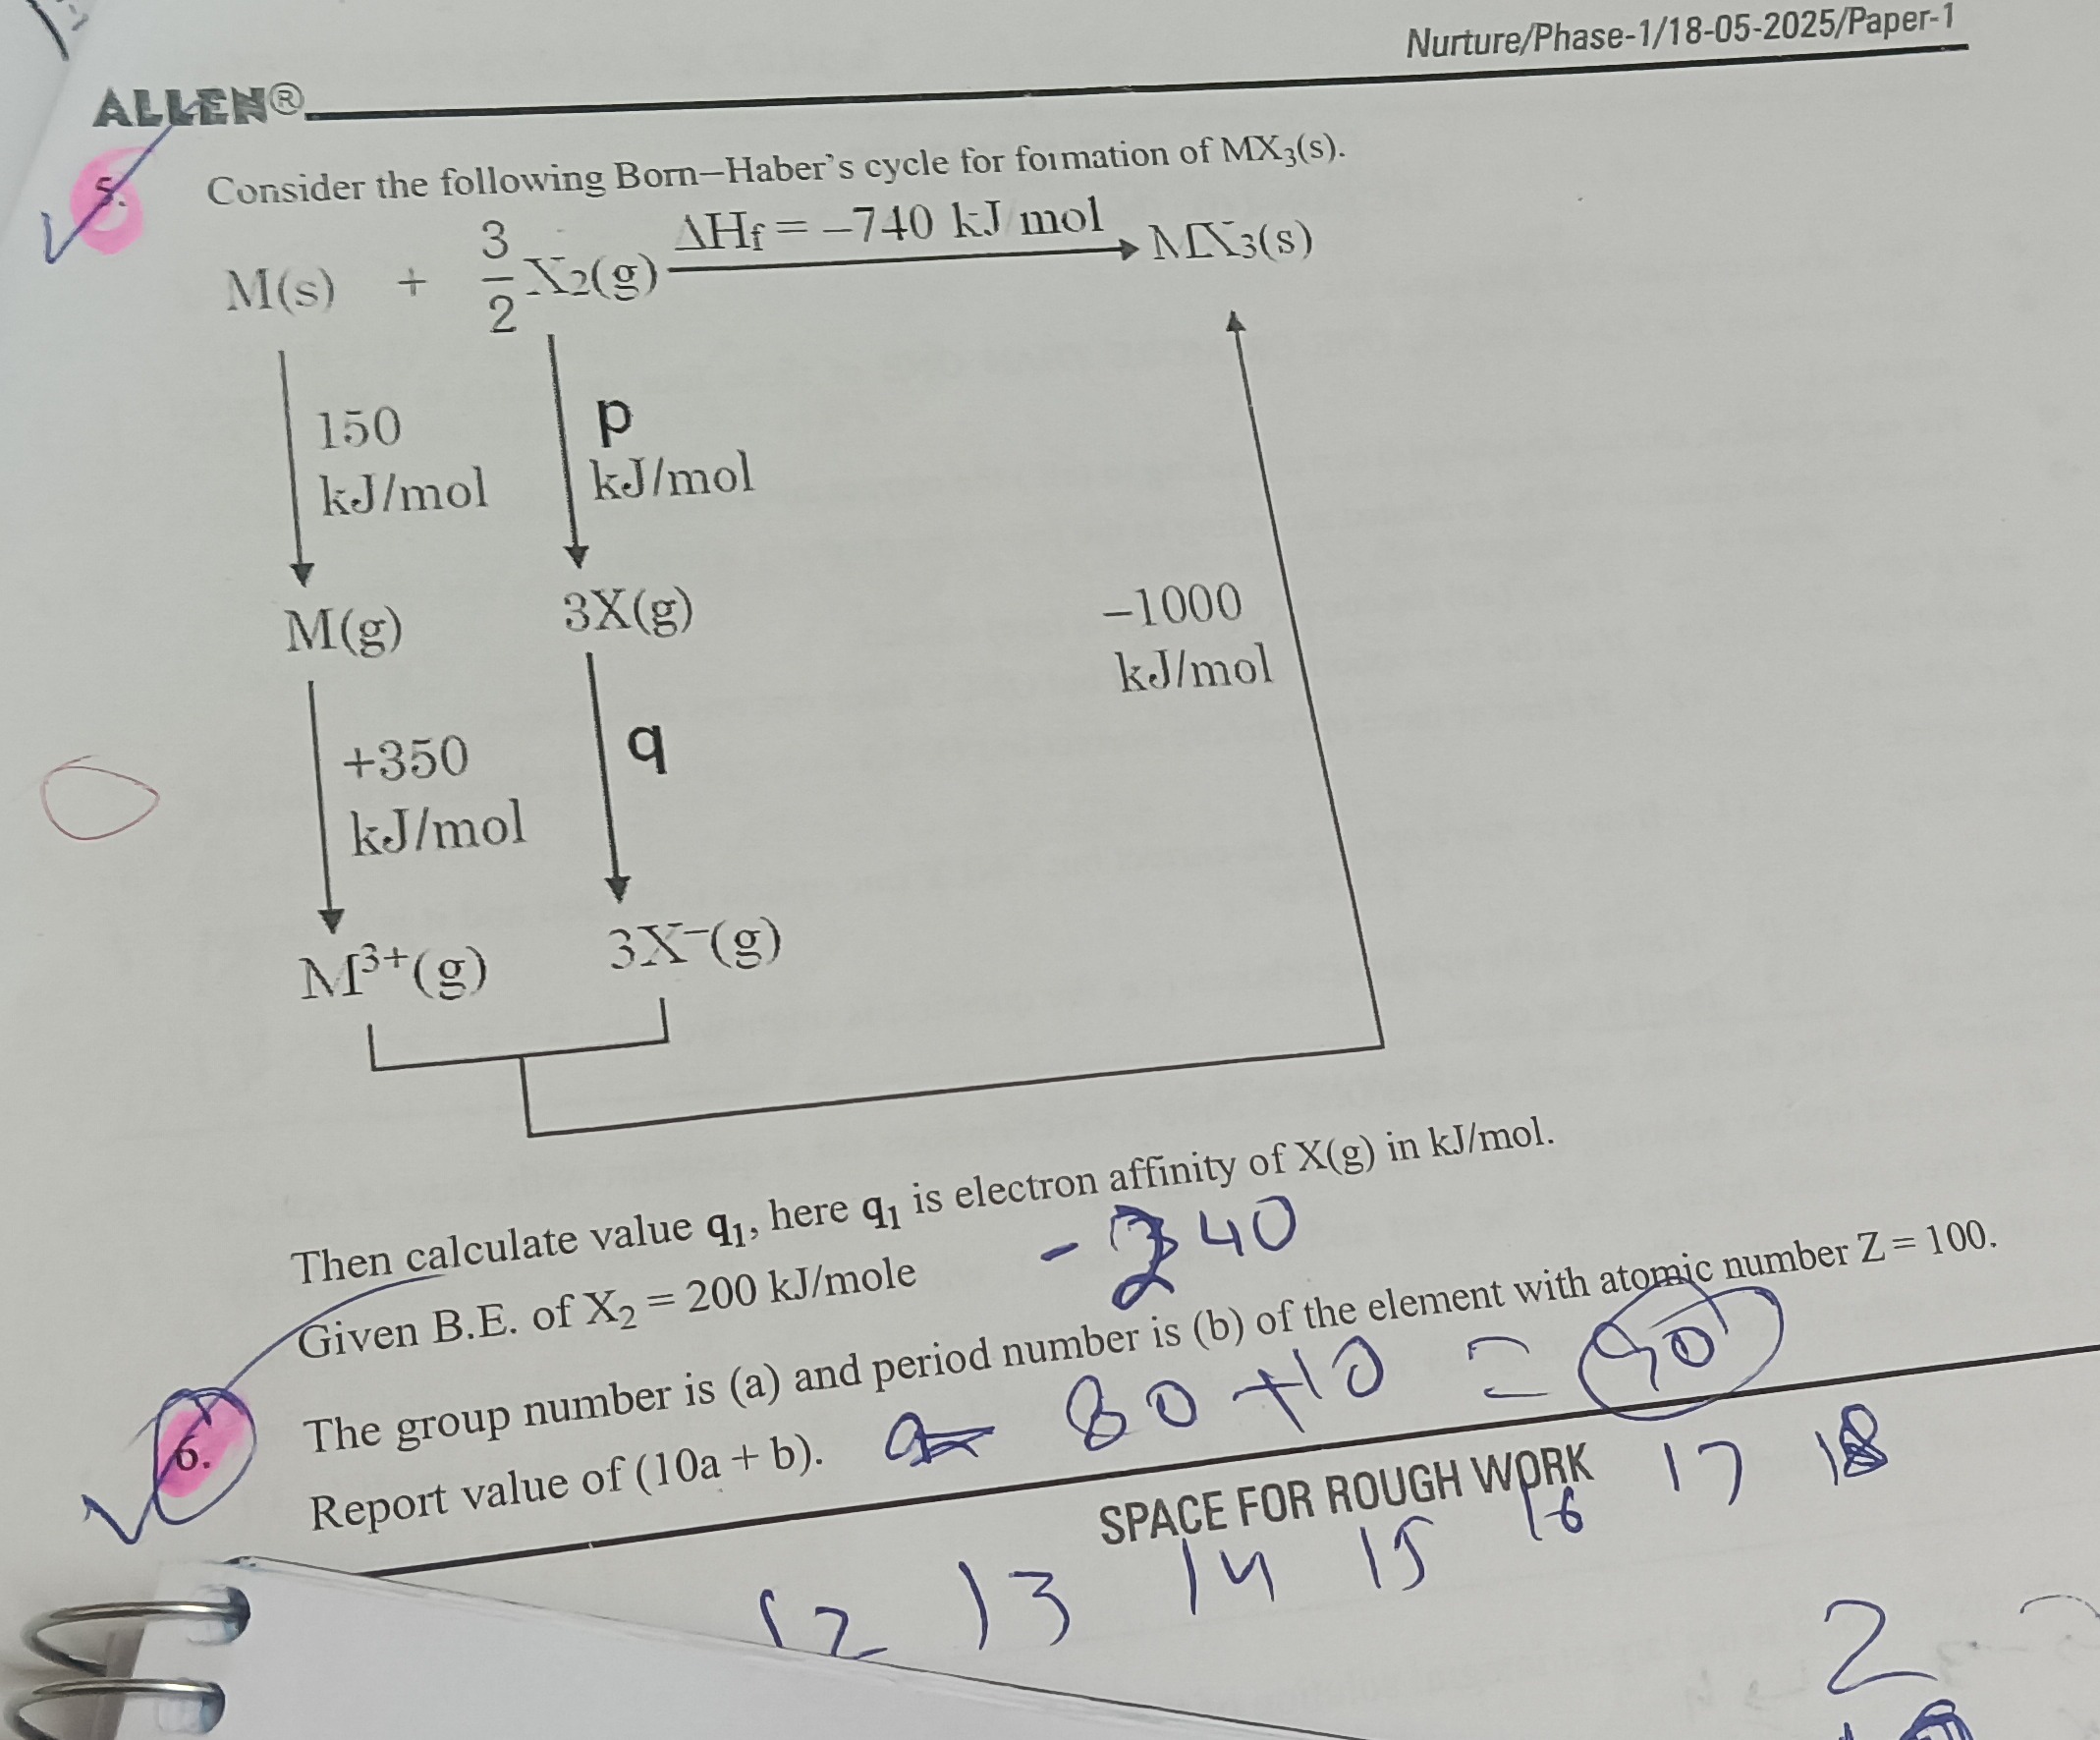 Nurture/Phase-1/18-05-2025/Paper-1
ALLEN®
5. Consider the following Born–Haber's cycle for formation of MX₃(s).
M(s) + 3/2 X₂(g) ΔHf = –740 kJ mol → MX₃(s)
150 kJ/mol
p kJ/mol
M(g) 3X(g)
–1000 kJ/mol
+350 kJ/mol
q
M³⁺(g) 3X⁻(g)
Then calculate value q₁, here q₁ is electron affinity of X(g) in kJ/mol.
Given B.E. of X₂ = 200 kJ/mole
40
6. The group number is (a) and period number is (b) of the element with atomic number Z = 100.
Report value of (10a + b).
80 + 10 =
SPACE FOR ROUGH WORK
12 13 14 15 16 17 18
2